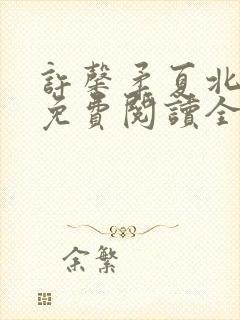 許馨予夏北
免費閱讀全
余繁